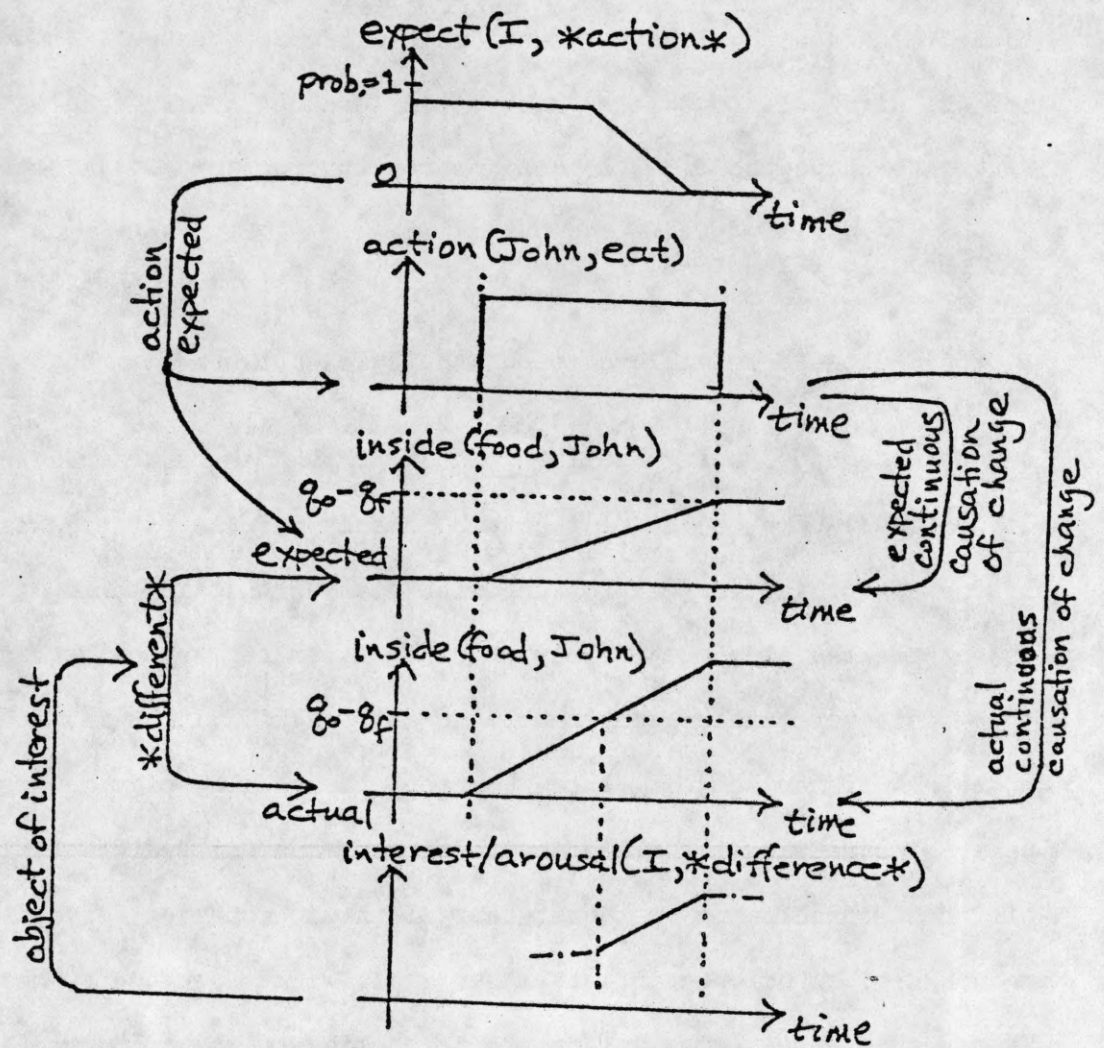 expect(I, *action*)
prob.=1
0
time
action(John, eat)
action
expected
time
inside(food, John)
q₀-q_f
expected
time
expected
continuous
causation
of change
inside(food, John)
q₀-q_f
*different*
actual
time
actual
continuous
causation of change
object of interest
interest/arousal(I, *difference*)
time